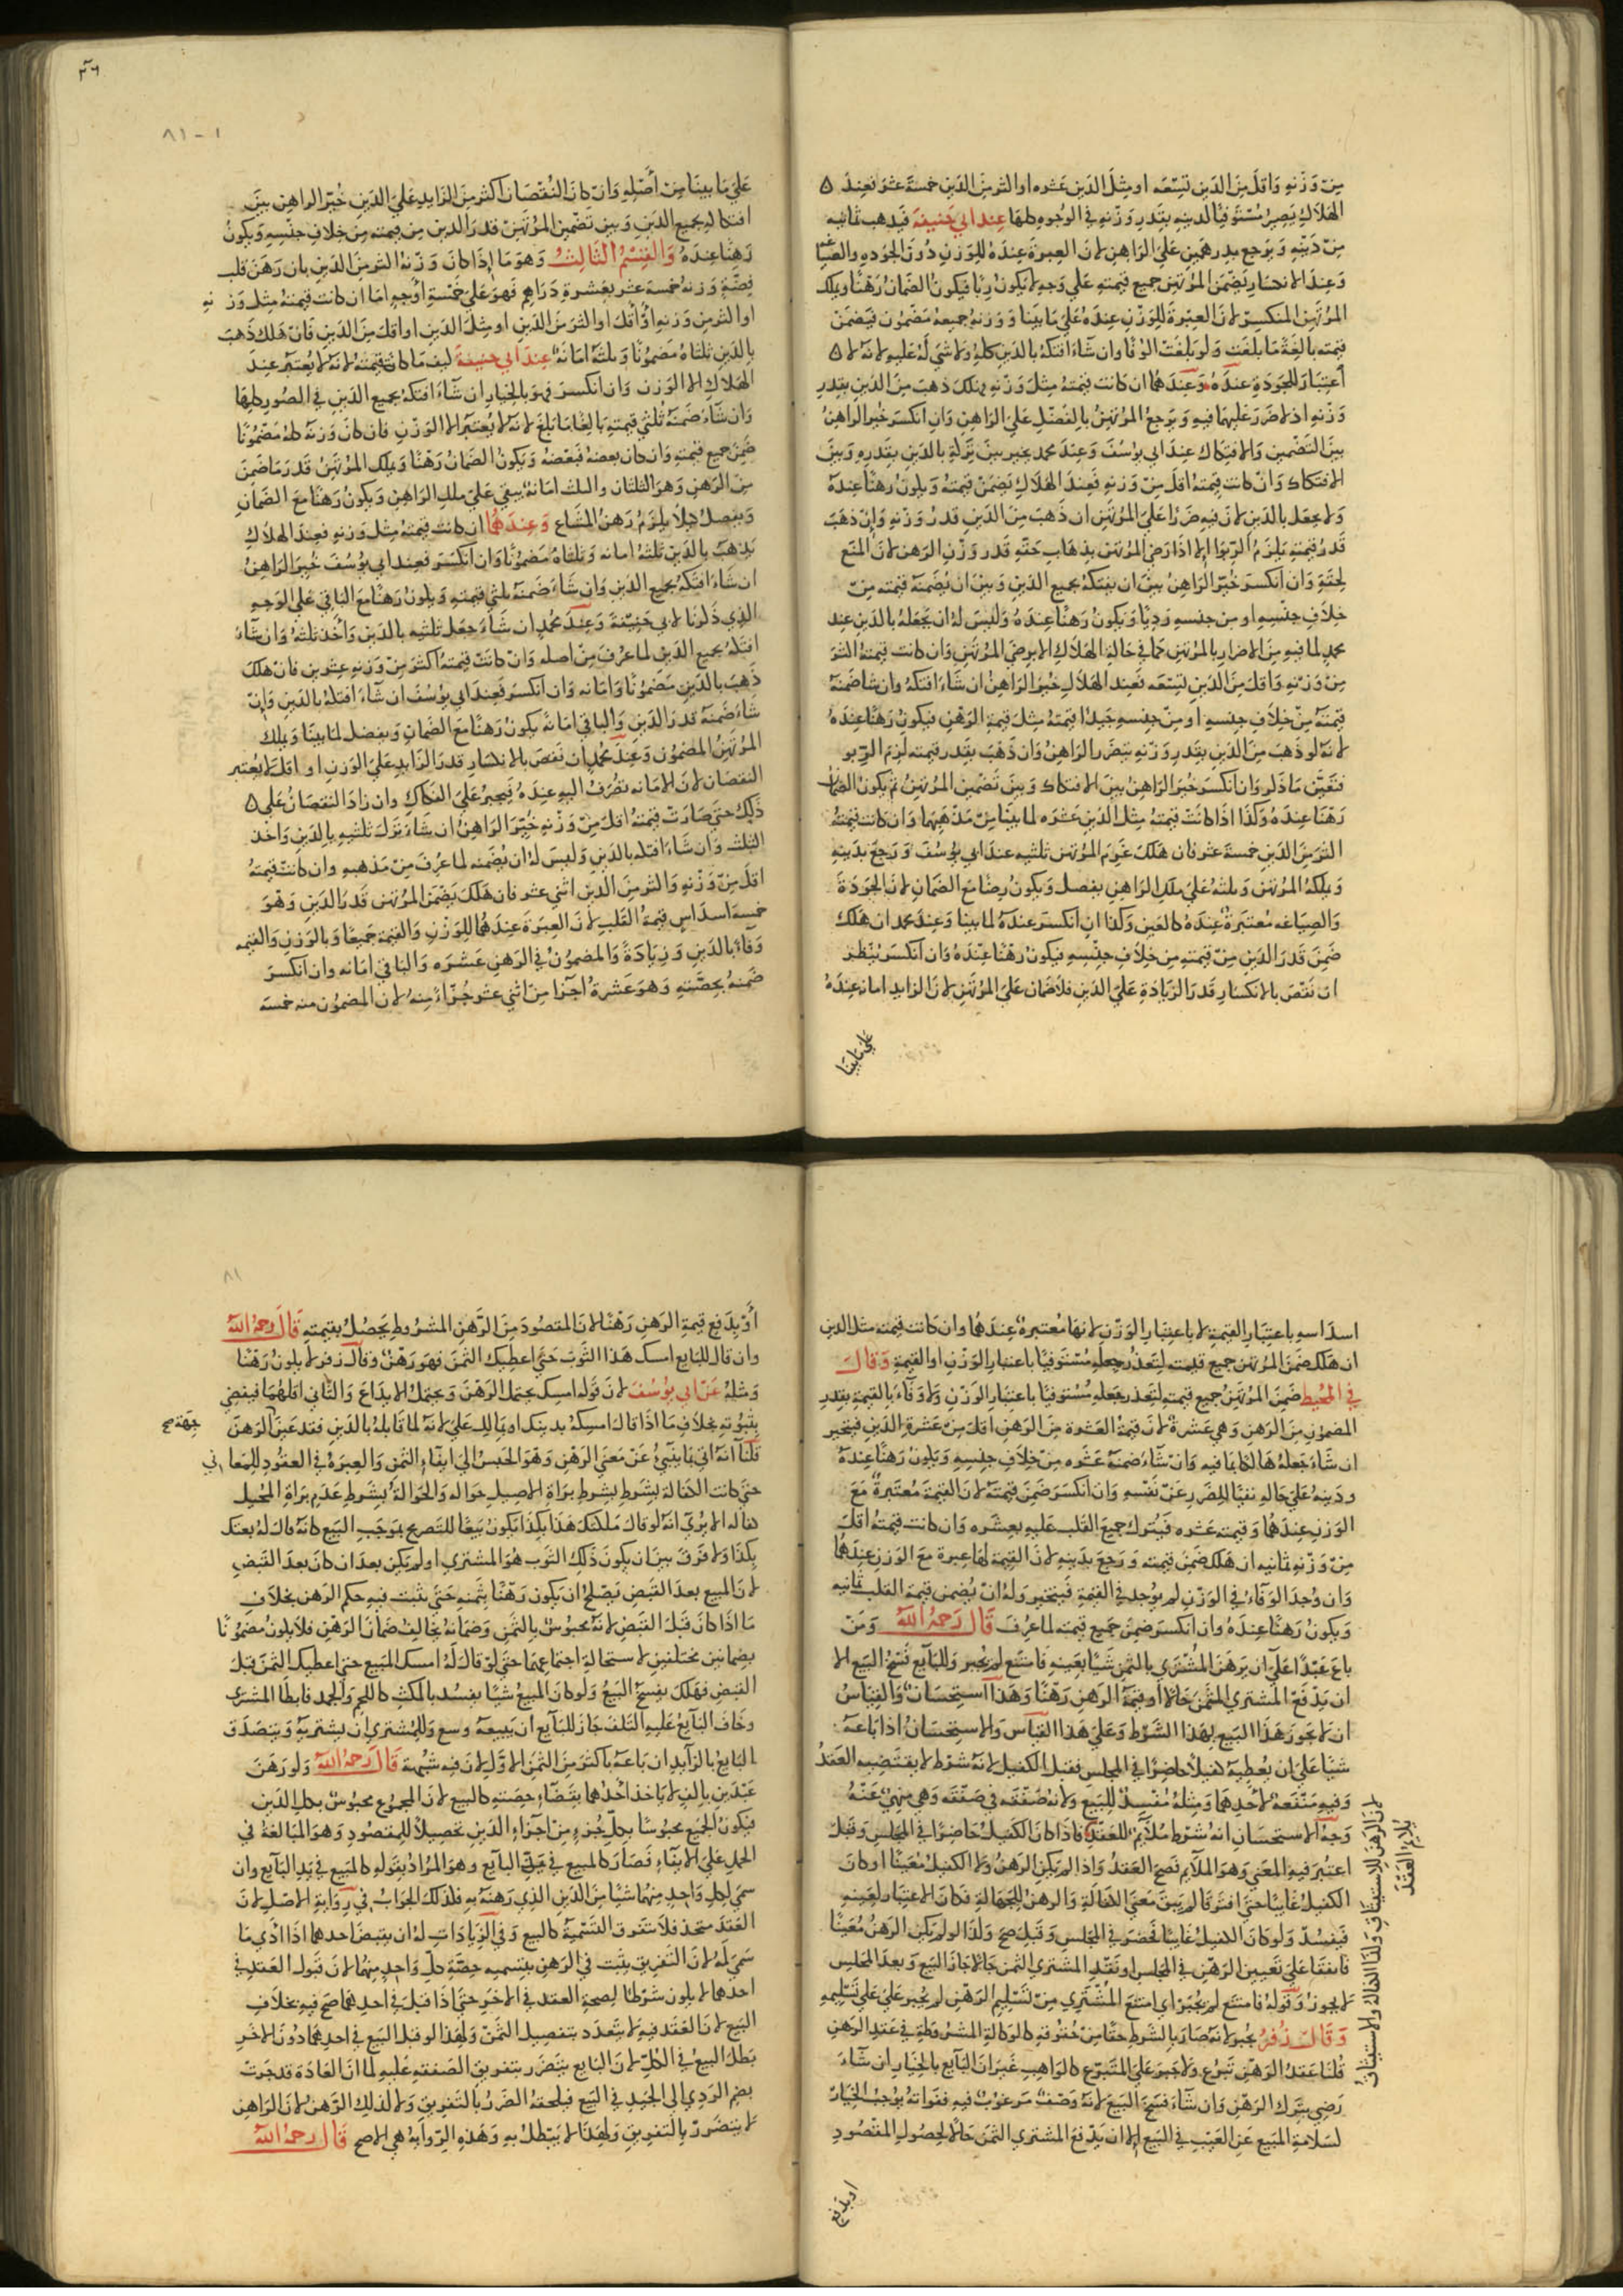 مِن وَزنِهِ وَاقلَّ مِنَ الدَين تِسْعَه اومِثلَ الدَين عَشره او اكثر مِنَ الدَين خمسةَ عَشَر فعِندَ
الهلَاكِ يَصِيرُ مُسْتَوفيًا لدينه بقدرِ وَزنِهِ في الوُجوهِ كلهَا عند ابي حنيفة فَيذهب ثمانيه
مِنْ دَينِهِ وَيَرجع بدرهمَين عَلى الرَاهِنِ لانَ العِبرَةَ عندَهُ للوَزنِ دُونَ الجَودَه والصياغه
وَعِندَ الانكسَار يَضمَنُ المُرتَهن جميع قيمتِهِ عَلى وَجه لا يكونُ رِبًا فيكونُ الضَمانُ رَهنًا ويملك
المُرتَهن المُنكسِرَ لانَ العِبرَةَ للوَزنِ عِندَهُ عَلى مَا بَينَا وَوَزنهُ جَميعهُ مَضمُون فيَضمَن
قيمَته بَالغَةً مَا بلغَت وَلو بَلغَت الوفًا وان شآءَ افتكهُ بالدَين كلهِ ولا شيَ لهُ عَليهِ لانهُ لا
اعتِبَارَ للجَودَةِ عندَهُ وَعندَهُمَا ان كانت قيمَتهُ مِثلَ وَزنِهِ يهلك ذهبَ مِنَ الدَين بقدرِ
وَزنِهِ اذ لا ضَرَر عَليهمَا فيهِ وَيَرجعُ المُرتَهنُ بالفَضلِ عَلى الرَاهِنِ وَان انكسَر خير الراهنُ
بينَ التَضمين وَالافتكاك عندَ ابي يوسُف وَعندَ محمد يخير بين تركه بالدَين بقدرهِ وَبينَ
الافتكاك وَان كانت قيمَتهُ اقل مِن وَزنِهِ فعِندَ الهلَاكِ يَضمَنُ قيمَتهُ وَيكونُ رهنًا عندَهُ
وَلا يجعَل بالدَين لانَ فيهِ ضَررًا عَلى المُرتَهن ان ذهَبَ مِنَ الدَين قدرُ وَزنِهِ وَان ذهَبَ
قدرُ قيمتِهِ يَلزَمُ الرِبوا الا اذا رضي المُرتَهن بذهَاب حَقهِ قدرَ وَزنِ الرَهن لانَ المنع
لحقهِ وَان انكسَر خُيرَ الرَاهِنُ بينَ ان يفتكهُ بجميع الدَين وَبينَ ان يُضَمنَه قيمتَه مِن
خِلافِ جنسِهِ او مِن جنسهِ رديًا وَيكونُ رَهنًا عِندَهُ وَليسَ لهُ ان يَجعَلهُ بالدَين عِند
محمد لما فيهِ مِنَ الاضرارِ بالمُرتَهن كما في حَالةِ الهلَاكِ الا برضَى المُرتَهن وَان كانت قيمتهُ اكثرَ
مِن وَزنِه وَاقلَّ مِنَ الدَين تِسعَه فعِندَ الهلَاكِ خُير الرَاهِنُ ان شاءَ افتكهُ وان شاءَ ضمنهُ
قيمَتَه مِن خِلافِ جنسهِ او مِن جنسهِ جَيدًا قيمَتهُ مِثلَ قيمَةِ الرَهن فيكونُ رَهنًا عندَهُ
لانهُ لو ذهَبَ مِنَ الدَين بقدرِ وَزنِهِ يتضَررُ الراهِنُ وَان ذهَبَ بقدرِ قيمَته لَزِم الرِبو
فتعَيَّن مَا ذكر وَان انكسَر خير الرَاهِنُ بينَ الافتكاك وَبينَ تضمين المُرتَهن ثم يكونُ الضمان
رَهنًا عِندَهُ وَكذا اذا كانت قيمَتهُ مِثلَ الدَين عَشَره لما بينا مِن مَذهَبهمَا وَان كانت قيمَتهُ
اكثرَ مِنَ الدَين خمسَةَ عَشَر فان هَلكَ غرمَ المُرتَهن ثلثيه عندَ ابي يوسُف وَرجَعَ بدَينِهِ
وَملكه المُرتَهن وَثلثهُ عَلى ملك الرَاهِن يفصل وَيكونُ رهنًا مَعَ الضَمانِ لانَ الجَودَةَ
وَالصِيَاغه مُعتَبرَة عِندَهُ كالعَين وَكذا ان انكسَر عندَهُ لما بينا وَعندَ محمد ان هَلكَ
ضَمِنَ قدرَ الدَين مِن قيمتِهِ مِن خِلافِ جنسِهِ فيكونُ رَهنًا عِندَهُ وَان انكسَر يُنظر
ان نقصَ بالانكسَارِ قدرَ الزيَادةِ عَلى الدَين فلا ضَمان عَلى المُرتَهن لانَ الزايد امانه عندَهُ
عَلى مَا بينَا
٣٦
٨١-١
عَلى مَا بينَا مِن أصلهِ وَان كانَ النُقصَان اكثر مِنَ الزايد عَلى الدَين خُيرَ الراهِن بينَ
افتكاكهِ بجميع الدَين وَبين تَضمين المُرتَهن قدرَ الدَين مِن قيمته مِن خِلافِ جنسِهِ وَيكونُ
رَهنًا عندَهُ وَالقِسمُ الثَالِثُ وَهوَ مَا اذا كانَ وَزنهُ اكثر مِنَ الدَين بان رَهَنَ قلب
فِضةٍ وَزنهُ خمسةَ عَشر بعَشرةِ دَراهِم فهوَ عَلى خمسَةِ اوجُهٍ امّا ان كانت قيمَتهُ مِثلَ وَزنهِ
او اكثر مِن وَزنهِ او اقل او اكثر مِنَ الدَين او مِثلَ الدَين او اقل مِنَ الدَين فان هَلكَ ذهَبَ
بالدَين ثلثاهُ مَضمُونًا وَثلثهُ امَانَة عندَ ابي حنيفة كيف ما كانت قيمَتهُ لانهُ لا يُعتَبر عندَ
الهلَاكِ الا الوَزن وَان انكسَر فهوَ بالخيارِ ان شاءَ افتكهُ بجميع الدَين في الصُور كلهَا
وَان شاءَ ضَمنَهُ ثُلثي قيمتِهِ بَالغًا مَا بلغَ لانهُ لا يُعتَبر الا الوَزن فان كانَ وَزنه كلهُ مَضمُونًا
ضَمِنَ جميع قيمتِهِ وَان كان بعضهُ فبَعضهُ وَيكونُ الضَمانُ رَهنًا وَيملك المُرتَهنُ قدرَ مَا ضَمِنَ
مِنَ الرَهن وَهوَ الثلثان والثلث امَانة يبقى عَلى ملك الرَاهن وَيكونُ رهنًا مَعَ الضَمانِ
وَيفصَلُ كيلا يلزمُ رَهنُ المشاع وَعِندَهُمَا ان كانت قيمتهُ مِثلَ وَزنهِ فعِندَ الهلَاكِ
يَذهَبُ بالدَين ثلثهُ امانه وَثلثاهُ مَضمُونًا وَان انكسَر فعِندَ ابي يوسُف خُيرَ الرَاهِنُ
ان شاءَ افتكهُ بجميع الدَين وَان شاءَ ضَمنَهُ ثلثي قيمتهِ وَيكونُ رَهنًا مَعَ البَاقي عَلى الوَجهِ
الذي ذكرنا لابي حَنيفة وَعِندَ محمد ان شاءَ جعَلَ ثلثيهِ بالدَين وَاخذَ ثلثهُ وَان شاءَ
افتكهُ بجميع الدَين لما عرفَ مِن اصله وَان كانت قيمَتهُ اكثر مِن وَزنهِ عشرين فان هلك
ذهَبَ بالدَين مَضمُونًا وَامَانه وَان انكسَر فعِندَ ابي يوسُف ان شاءَ افتكه بالدَين وَان
شاءَ ضَمنَه قدرَ الدَين وَالبَاقي امَانة يكونُ رَهنًا مَعَ الضَمانِ ويفصل لما بينا وَيملك
المُرتَهنُ المضمُون وَعِندَ محمد ان نقصَ بالانكسَار قدرَ الزايد عَلى الوَزن او اقل لا يُعتبر
النقصَان لانَ الامَانه تصُرف اليهِ عندَهُ فيُجبرُ عَلى الفكاكِ وان زادَ النقصَانُ على
ذلِكَ حتى صَارَت قيمَتهُ اقل مِن وَزنِهِ خُيرَ الرَاهِنُ ان شاءَ ترَكَ ثلثيهِ بالدَين وَاخذ
الثلث وَان شاءَ افتكه بالدَين وَليسَ لهُ ان يُضَمنه لما عرفَ مِن مَذهبهِ وان كانت قيمَتهُ
اقل مِن وَزنهِ وَاكثر مِنَ الدَين اثني عشر فان هَلك يَضمَن المُرتَهن قدرَ الدَين وَهوَ
خمسةَ اسدَاس قيمَةِ القلب لانَ العِبرَة عِندَهُمَا للوَزنِ وَالقيمةِ جَميعًا وَبالوَزنِ وَالقيمهِ
وَفاءٌ بالدَين وَزيادَةٌ وَالمضمُونُ في الرَهنِ عَشرَه وَالبَاقي امَانه وان انكسَر
ضَمنهُ بحصتهِ وَهوَ عَشرَةُ اجزَا مِن اثني عشر جُزءًا مِنهُ لان المضمُون منه خمسة
اسدَاسهِ باعتبَارِ القيمةِ لا باعتبَارِ الوَزنِ لانهَا مُعتبرة عندَهُمَا وان كانت قيمته مثلَ الدين
ان هَلك ضَمنَ المُرتَهن جميع قيمته لتعَذرِ جعلهِ مُستَوفيًا باعتبارِ الوَزن او القيمةِ وَقالَ
في المُحيط ضَمِنَ المُرتَهنُ جميع قيمتهِ لتعَذرِ جعلهِ مُستَوفيًا باعتبار الوَزن وَلا وَفاءَ بالقيمةِ بقدرِ
المضمُون مِنَ الرَهن وَهيَ عَشرَة لانَ قيمَةَ العَشره مِنَ الرَهنِ اقل مِن عَشرَةِ الدَين فيتخير
ان شاءَ جعَلهُ هَالكًا بمَا فيهِ وَان شاءَ ضَمنهُ عَشَره مِن خِلافِ جنسِهِ وَيكونُ رَهنًا عِندَهُ
ودَينهُ عَلى حالهِ نفيًا للضَررِ عَن نفسِهِ وَان انكسَر ضَمنَ قيمتَه لانَ القيمَةَ مُعتَبرَةٌ مَعَ
الوَزنِ عندَهُمَا وَقيمَتهُ عَشَره فَيُترَك جميعَ القلب عَليهِ بعشَره وَان كانت قيمَتهُ اقل
مِن وَزنهِ ثمانيه ان هَلك ضَمنَ قيمَته وَرجَعَ بدَينهِ لانَ القيمَةَ لهَا عبرة مَعَ الوَزنِ عِندَهُمَا
وَان وُجدَ الوَفاءُ في الوَزنِ لم يوجد في القيمَةِ فيتخير وَلهُ ان يُضمن قيمَةَ القلب ثمانيه
وَيكونُ رَهنًا عندَهُ وان انكسَر ضمنَ جميع قيمته لما عُرفَ قَالَ رَحِمَهُ اللهُ وَمَن
باعَ عَبدًا عَلى ان يَرهَنَ المُشتَري بالثمَن شيئًا بعَينهِ فامتنَع لم يُجبر وَللبآيع فسخُ البَيع الا
ان يَدفعَ المُشتري الثمَنَ حَالًا او قيمَةَ الرَهنِ رَهنًا وَهَذا استحسَان وَالقِيَاسُ
ان لا يجوز هَذا البَيع بهَذا الشَرط وَعَلى هَذا القيَاسُ وَالاستحسَانُ اذا بَاعَهُ
شيئا عَلى ان يُعطِيَهُ كفيلًا حاضرًا في المجلس فقبل الكفيل لانهُ شرط لا يقتضِيهِ العَقدُ
وَفيهِ مَنفعَة لاحدِهمَا وَمِثلهُ مُفسِدٌ للبَيع وَلانهُ صَفقَه في صَفقَه وَهيَ منهيٌ عَنهُ
وَجهُ الاستحسَانِ انهُ شَرط مُلَائم للعَقد فاذا كانَ الكفيلُ حَاضرًا في المجلس وَقبلَ
اعتُبرَ فيهِ المعنى وَهوَ المُلايم فصَحَ العَقدُ وَاذا لم يَكن الرَهنُ وَلا الكفيلُ مُعَينًا او كانَ
الكفيلُ غَايبًا حتى افترقا لم يَبق مَعنى الكفالةِ وَالرهن للجهَالة فكانَ الاعتبَارُ لعَينِهِ
فَيفسُد وَلو كانَ الكفيلُ غَايبًا فحضرَ في المجلسِ وَقبِلَ صَح وَكذا لو لم يَكن الرَهنُ مُعَينًا
فاتفقا عَلى تعيين الرَهن في المجلس او نقَد المشتري الثمنَ حَالًا جازَ البَيع وَبعدَ المجلس
لا يجوزُ وَقولهُ فامتنَعَ لم يُجبَر اي امتنعَ المُشتَري مِن تسليم الرَهن لم يجبر عَلى تسليمهِ
وَقالَ زُفرُ يجبر لانهُ صَارَ بالشرطِ حقًا مِن حُقوقهِ كالوكالةِ المشرُوطة في عَقدِ الرَهن
قُلنا عَقدُ الرَهن تبرُع وَلا جبرَ عَلى المتبرع كالوَاهب غيرَ انَ البَآيع بالخيارِ ان شاءَ
رَضيَ بترك الرَهن وَان شاءَ فسَخَ البَيعَ لانهُ وَصف مَرغوب فيهِ ففوَاتهُ يوجبُ الخيارَ
لسَلامةِ المبيع عَن العَيب في البَيع الا ان يَدفعَ المشتري الثمنَ حَالًا لحصُولِ المقصُودِ
لان الرهن للاستيثاق وكذا الكفالة والاستيثاق
يلايم العقد
او بدفع
٨١
أَو بِدَفع قيمةِ الرَهنِ رَهنًا لانَ المقصُودَ مِنَ الرَهنِ المشرُوط يَحصُلُ بقيمتِهِ قَالَ رَحِمَهُ اللهُ
وان قال للبايع امسِك هَذا الثوبَ حَتى اعطيك الثمنَ فهوَ رَهن وَقال زفر لا يكون رَهنًا
وَمثلهُ عَن ابي يوسُف لانَ قولهُ امسِك يحتمل الرَهنَ وَيحتمل الايدَاعَ وَالثَّاني اقلهُمَا فيقضى
بثبُوتهِ بخلافِ مَا اذا قالَ امسِكهُ بدَينك او بمالك عَليَّ لانهُ لما قابلهُ بالدَين فقد عَيَّنَ الرَهنَ
جهة صح
قُلنا انهُ اتى بمَا يُنبئُ عَن مَعنى الرَهن وَهوَ الحَبسُ الى ايفاءِ الثمَن وَالعِبرَةُ في العقُودِ للمعَاني
حتى كانت الكفالة بشرطِ براءة الاصيلِ حواله وَالحَوالة بشَرطِ عَدَم برَاةِ المُحيل
كفاله الا ترى انهُ لو قال مَلكتكَ هَذا بكذا يكونُ بَيعًا للتصريح بمُوجَب البَيع كانه قالَ لهُ بعتك
بكذا وَلا فرقَ بينَ ان يكونَ ذلِكَ الثوب هوَ المشتري او لم يَكن بعدَ ان كانَ بعدَ القبضِ
لانَ المبيع بعدَ القبض يَصلحُ ان يكون رَهنًا بثمنهِ حتى يثبُت فيهِ حكم الرَهنِ بخلافِ
مَا اذا كانَ قبلَ القبضِ لانهُ محبُوس بالثمنِ وَضمَانهُ يخالِفُ ضمانَ الرَهن فلا يكون مَضمُونًا
بضمانين مختلفين لاستحالةِ اجتماعهمَا حتى لو قال لهُ امسك المبيع حتى اعطيك الثمنَ قبلَ
القبضِ فهَلكَ ينفسخُ البَيعُ وَلو كان المبيعُ شيئًا يفسُد بالمكثِ كاللحمِ وَالجمد فابطأ المشتري
وخاف البَآيعُ عَليهِ التلفَ جَاز للبَآيع ان يَبيعَهُ وَسعَ وَللمُشتري ان يشتريَهُ وَيتصَدَق
البَايع بالزايد ان باعَهُ باكثر مِنَ الثمن الاول لان فيه شبهة قَالَ رَحِمَهُ اللهُ وَلو رَهنَ
عَبدَين بالفٍ لا ياخذ احدَهما بقضاءِ حِصتهِ كالبيع لانَ المجمُوع محبُوس بكل الدَين
فيكونُ الجميع محبُوسًا بكلِّ جُزءٍ مِن اجزَاءِ الدَين تحصِيلًا للمقصُودِ وَهوَ المبَالغةُ في
الحمل عَلى الايفاءِ فصَارَ كالمبيع في يد البَايع وَهوَ المُرادُ بقَولهِ كالمَبيع في يَدِ البَآيع وان
سمى لكل وَاحدٍ مِنهُما شيئا مِنَ الدَين الذي رَهنَهُ به فكذلكَ الجوَابُ في رِوَايةِ الاصل لانَ
العَقد متحد فلا يتفرق بالتَسميةِ كالبيع وَفي الزيَادَاتِ لهُ ان يقبضَ احدهما اذا ادَّى مَا
سَمى لهُ لانَ التفريق يثبُت في الرَهن بتسميهِ حِصةِ كلِّ وَاحدٍ مِنهُما لانَ قبولَ العَقد في
احدهما لا يكون شَرطًا لصحةِ العقد في الاخَر حَتى اذا قبلَ في احدِهمَا صَح فيهِ بخلافِ
البَيع لانَ العَقد فيهِ لا يتعَدد بتفصيل الثمنِ وَلهَذا لو قبل البَيع في احدهمَا دُونَ الاخَر
بَطلَ البَيعُ في الكلِّ لانَ البَايع يتضَرر بتفريقِ الصَفقه عَليهِ لما انَ العَادَة قد جَرت
بضم الرَدي الى الجَيد في البَيع فيلحقهُ الضَررُ بالتفريقِ وَلا كذلك الرَهنُ لانَ الرَاهِن
لا يتضَررُ بالتفريقِ وَلهذا لا يَبطلُ بهِ وَهَذهِ الرِوَايةُ هيَ الاصح قَالَ رَحِمَهُ اللهُ